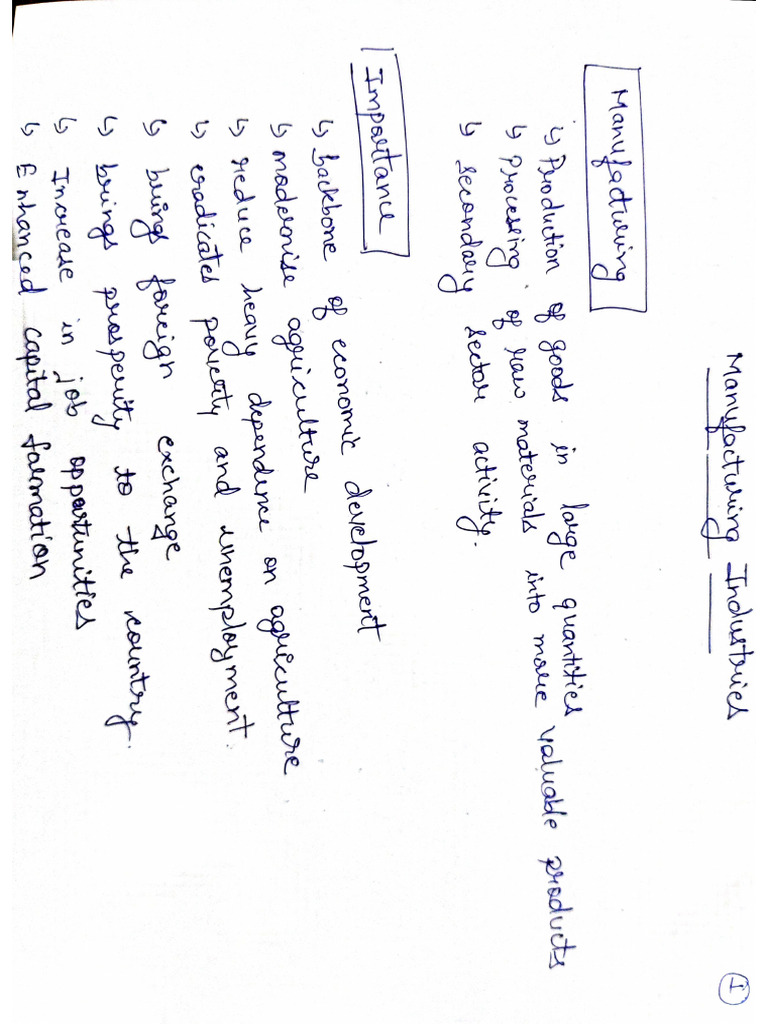 1
Manufacturing Industries
Manufacturing
↳ Production of goods in large quantities
↳ Processing of raw materials into more valuable products
↳ Secondary sector activity.
Importance
↳ backbone of economic development
↳ modernise agriculture
↳ reduce heavy dependence on agriculture
↳ eradicates poverty and unemployment.
↳ brings foreign exchange
↳ brings prosperity to the country.
↳ Increase in job opportunities
↳ Enhanced capital formation